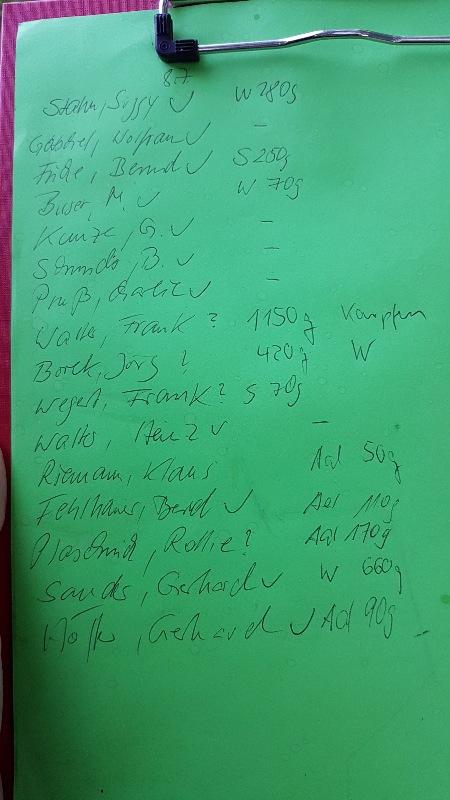 8.7.
Stahn, Siggy ✓ W 280g
Gabriel, Wolfram ✓ –
Fricke, Bernd ✓ S 250g
Buser, M. ✓ W 70g
Kunze, G. ✓ –
Schmidt, B. ✓ –
Pruß, ✓ –
Walter, Frank ? 1150g Karpfen
Borck, Jörg ? 420g W
Wegert, Frank ? S 70g
Walter, Heinz ✓ –
Riemann, Klaus Aal 50g
Fehlhaus, Bernd ✓ Aal 110g
Plaschnick, Rollie ? Aal 170g
Sauder, Gerhard ✓ W 660g
Gerhard ✓ Aal 90g